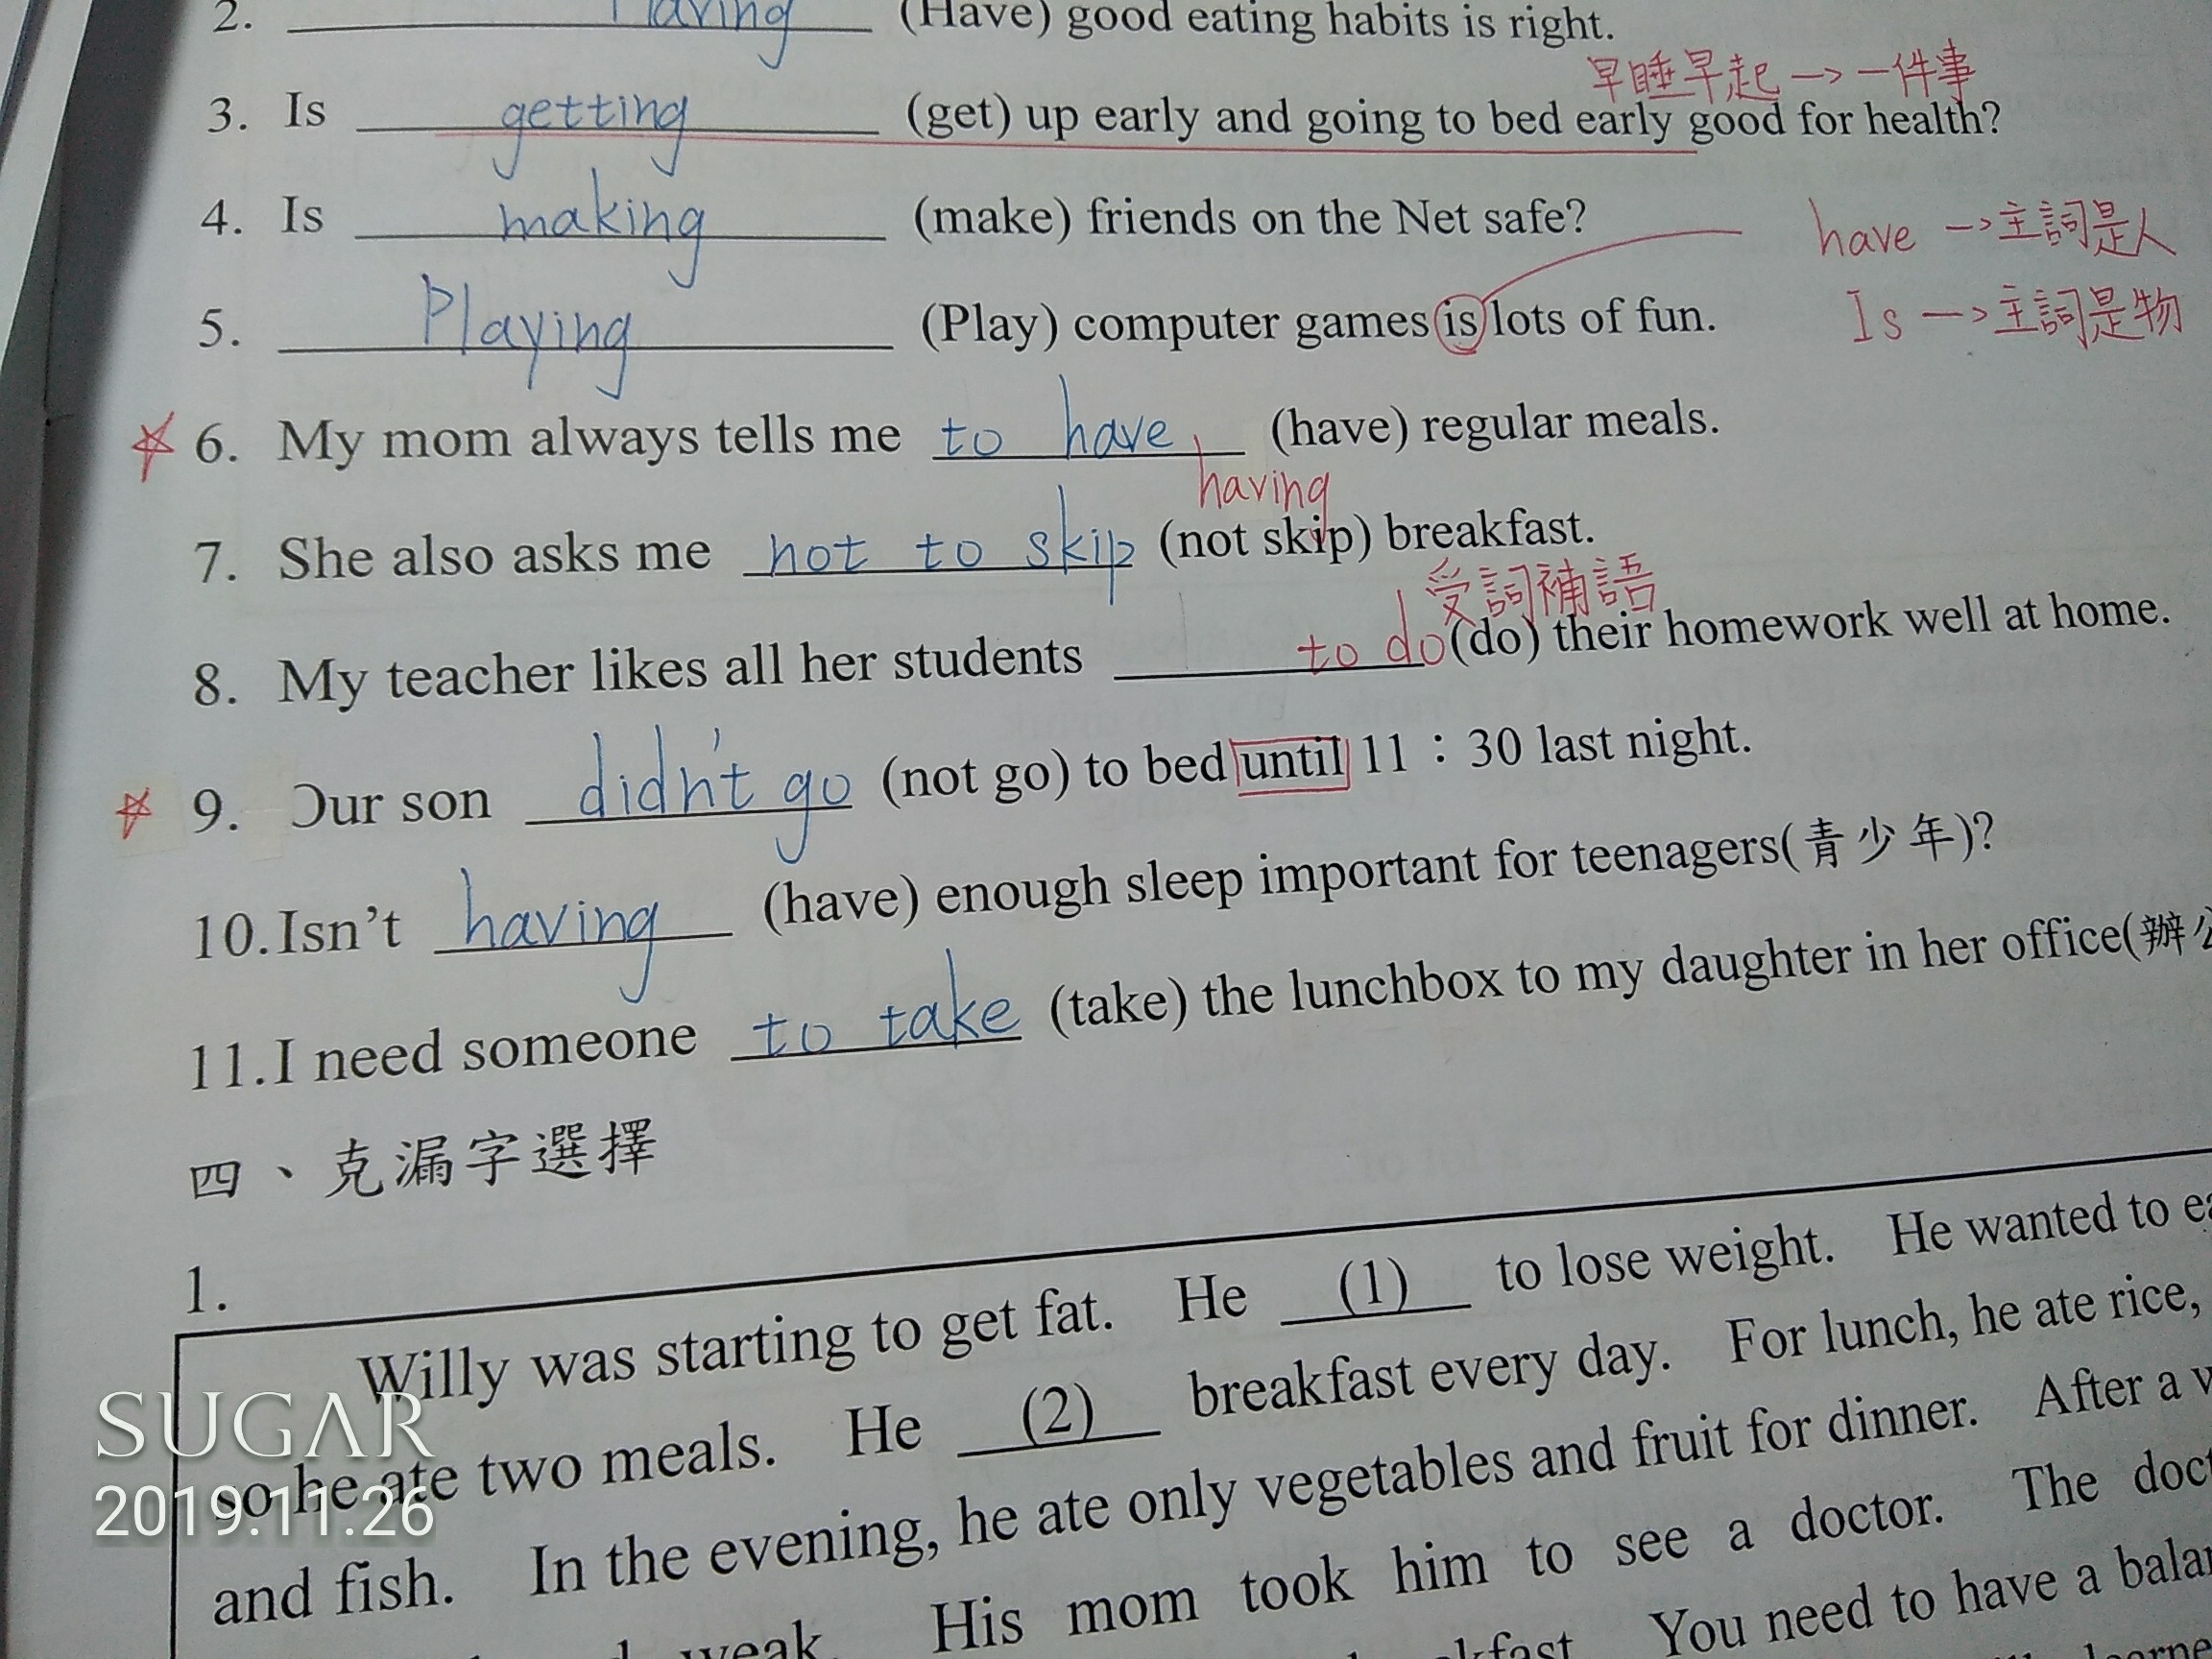 2. Having (Have) good eating habits is right.
早睡早起 → 一件事
3. Is getting (get) up early and going to bed early good for health?
4. Is making (make) friends on the Net safe?
have → 主詞是人
5. Playing (Play) computer games is lots of fun.
Is → 主詞是物
6. My mom always tells me to have (have) regular meals.
having
7. She also asks me not to skip (not skip) breakfast.
受詞補語
8. My teacher likes all her students to do (do) their homework well at home.
9. Our son didn't go (not go) to bed until 11：30 last night.
10.Isn't having (have) enough sleep important for teenagers(青少年)?
11.I need someone to take (take) the lunchbox to my daughter in her office(辦公
四、克漏字選擇
1.
Willy was starting to get fat. He (1) to lose weight. He wanted to
so he ate two meals. He (2) breakfast every day. For lunch, he ate rice,
and fish. In the evening, he ate only vegetables and fruit for dinner. After a
weak. His mom took him to see a doctor. The
You need to have a
SUGAR
2019.11.26